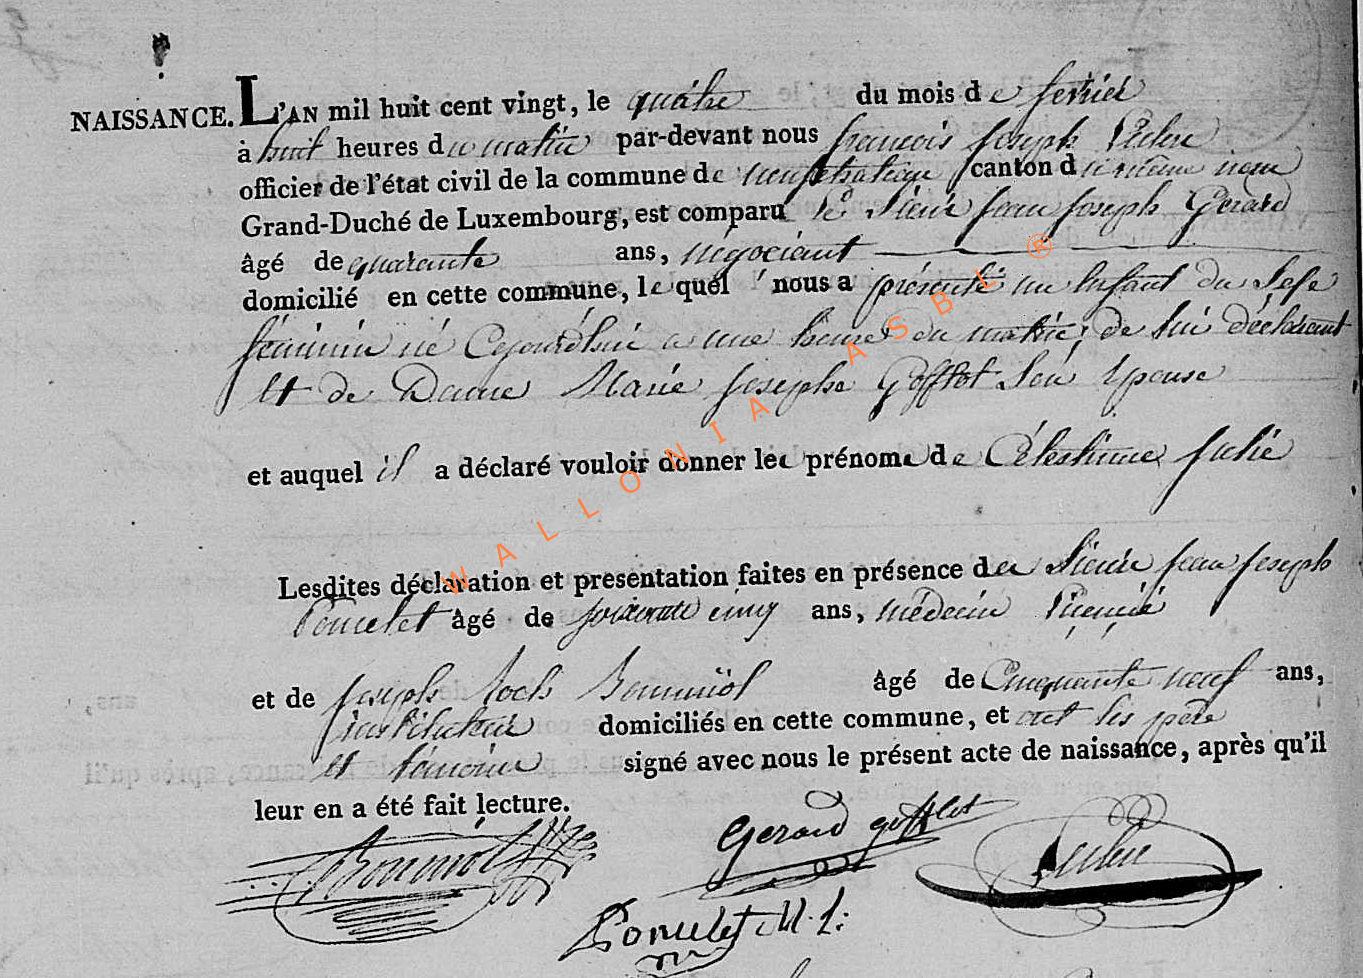 NAISSANCE. L'AN mil huit cent vingt, le quatre du mois de fevrier
à huit heures du matin par-devant nous françois Joseph
officier de l'état civil de la commune de neufchateau canton du même nom
Grand-Duché de Luxembourg, est comparu le Sieur jean joseph Gerard
âgé de quarante ans, négociant
domicilié en cette commune, lequel nous a présenté un Enfant du Sexe
féminin né Cejourdhui a une heure du matin, de lui déclarant
et de Dame Marie josephe Gofflot Son Epouse
et auquel il a déclaré vouloir donner les prénoms de Célestinne julie
Lesdites déclaration et presentation faites en présence des Sieur jean joseph
Poncelet âgé de soixante cinq ans, médecin
et de joseph Roch Bonmiol âgé de Cinquante neuf ans,
instituteur domiciliés en cette commune, et ont les père
et témoins signé avec nous le présent acte de naissance, après qu'il
leur en a été fait lecture.
Gerard gofflot
Bonmiol
Poncelet M. L:
WALLONIA ASBL ®